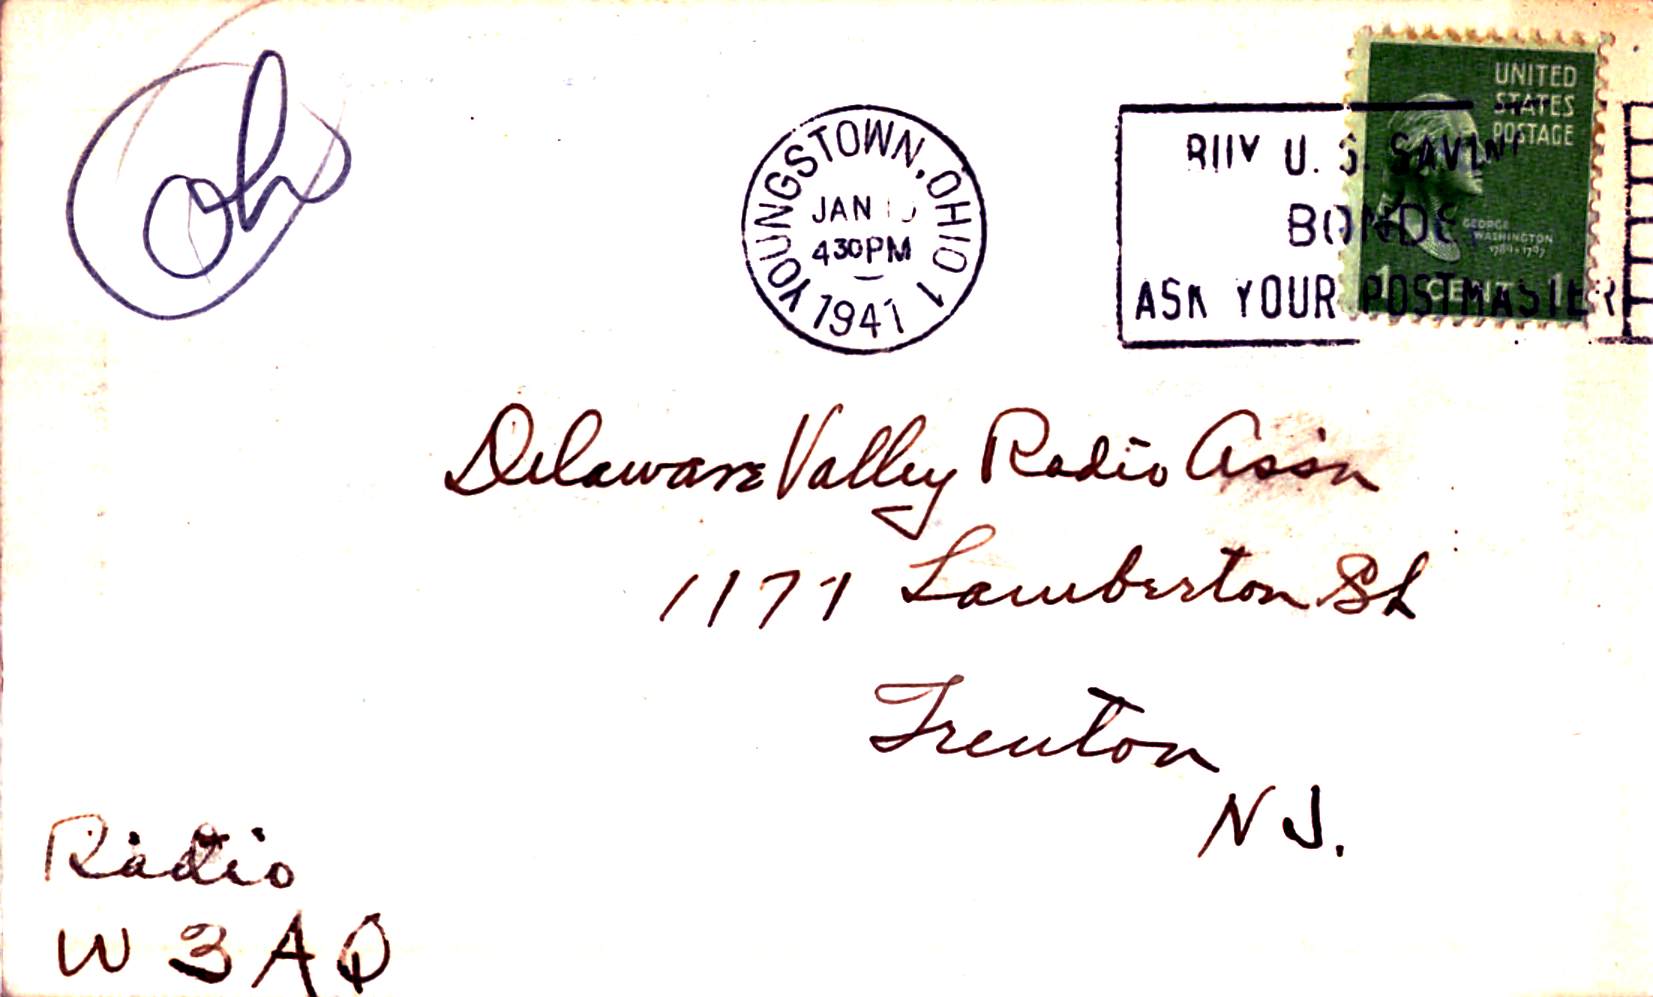 oh
YOUNGSTOWN, OHIO 1
JAN
430PM
1941
BUY U. S. SAVINGS
BONDS
ASK YOUR POSTMASTER
UNITED
STATES
POSTAGE
GEORGE
WASHINGTON
1789-1797
1 CENT 1
Delaware Valley Radio Ass'n
1177 Lamberton St
Trenton
N J.
Radio
W 3 A Q